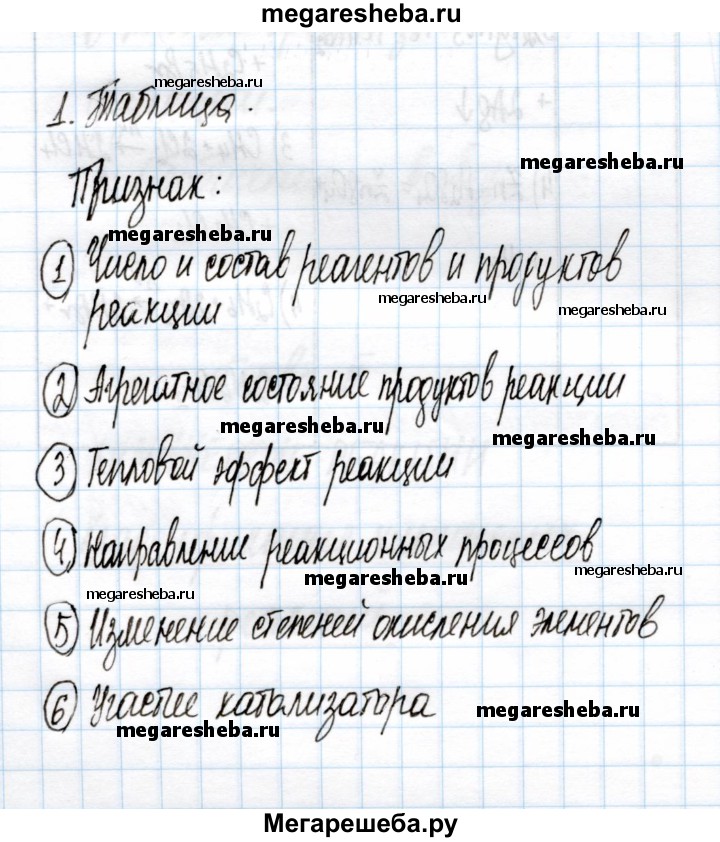 megaresheba.ru
megaresheba.ru
1. Таблица.
megaresheba.ru
Признак:
megaresheba.ru
1) Число и состав реагентов и продуктов
megaresheba.ru
megaresheba.ru
реакции
2) Агрегатное состояние продуктов реакции
megaresheba.ru
megaresheba.ru
3) Тепловой эффект реакции
4) Направление реакционных процессов
megaresheba.ru
megaresheba.ru
megaresheba.ru
5) Изменение степеней окисления элементов
6) Участие катализатора
megaresheba.ru
megaresheba.ru
Мегарешеба.ру